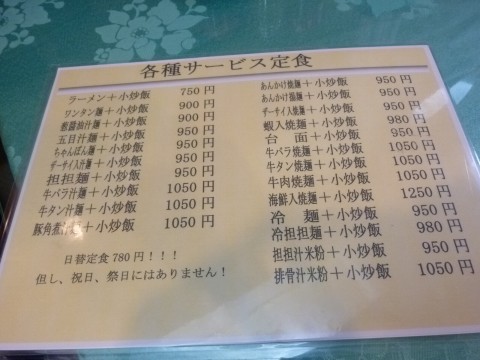 各種サービス定食
ラーメン＋小炒飯 750円
ワンタン麺＋小炒飯 900円
葱醤油汁麺＋小炒飯 900円
五目汁麺＋小炒飯 950円
ちゃんぽん麺＋小炒飯 950円
ザーサイ入汁麺＋小炒飯 950円
担担麺＋小炒飯 950円
牛バラ汁麺＋小炒飯 1050円
牛タン汁麺＋小炒飯 1050円
豚角煮汁麺＋小炒飯 1050円
日替定食780円！！！
但し、祝日、祭日にはありません！
あんかけ焼麺＋小炒飯 950円
あんかけ揚麺＋小炒飯 950円
ザーサイ入焼麺＋小炒飯 950円
蝦入焼麺＋小炒飯 980円
台面＋小炒飯 950円
牛バラ焼麺＋小炒飯 1050円
牛タン焼麺＋小炒飯 1050円
牛肉焼麺＋小炒飯 1050円
海鮮入焼麺＋小炒飯 1250円
冷麺＋小炒飯 950円
冷担担麺＋小炒飯 980円
担担汁米粉＋小炒飯 950円
排骨汁米粉＋小炒飯 1050円